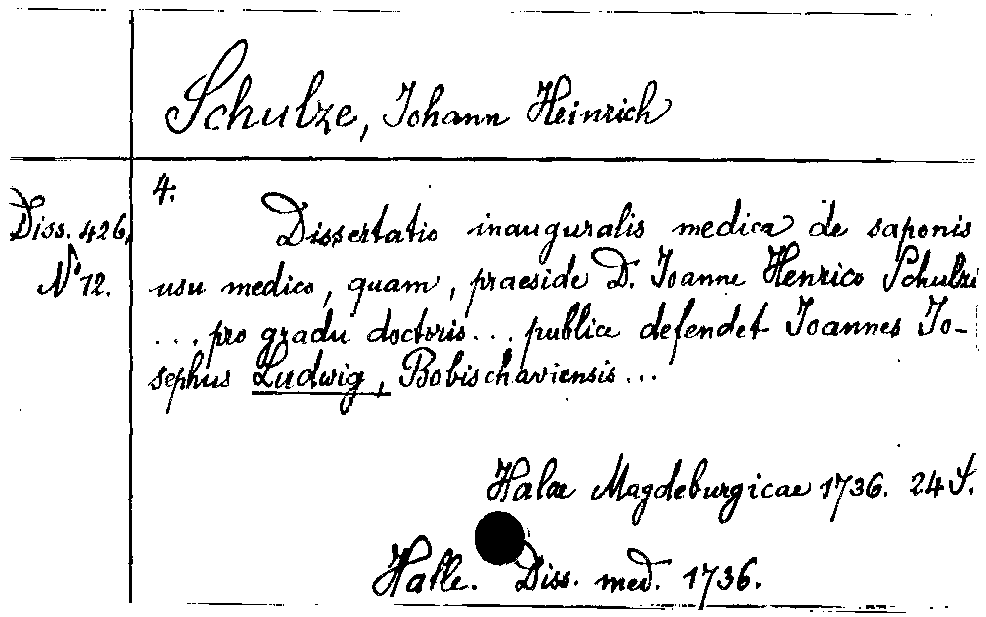 Schulze, Johann Heinrich
4.
Diss. 426, Dissertatio inauguralis medica de saponis
N° 12. usu medico, quam, praeside D. Joanne Henrico Schulzi
... pro gradu doctoris ... publice defendet Joannes Jo-
sephus Ludwig, Bobischaviensis ...
Halae Magdeburgicae 1736. 24 S.
Halle. Diss. med. 1736.